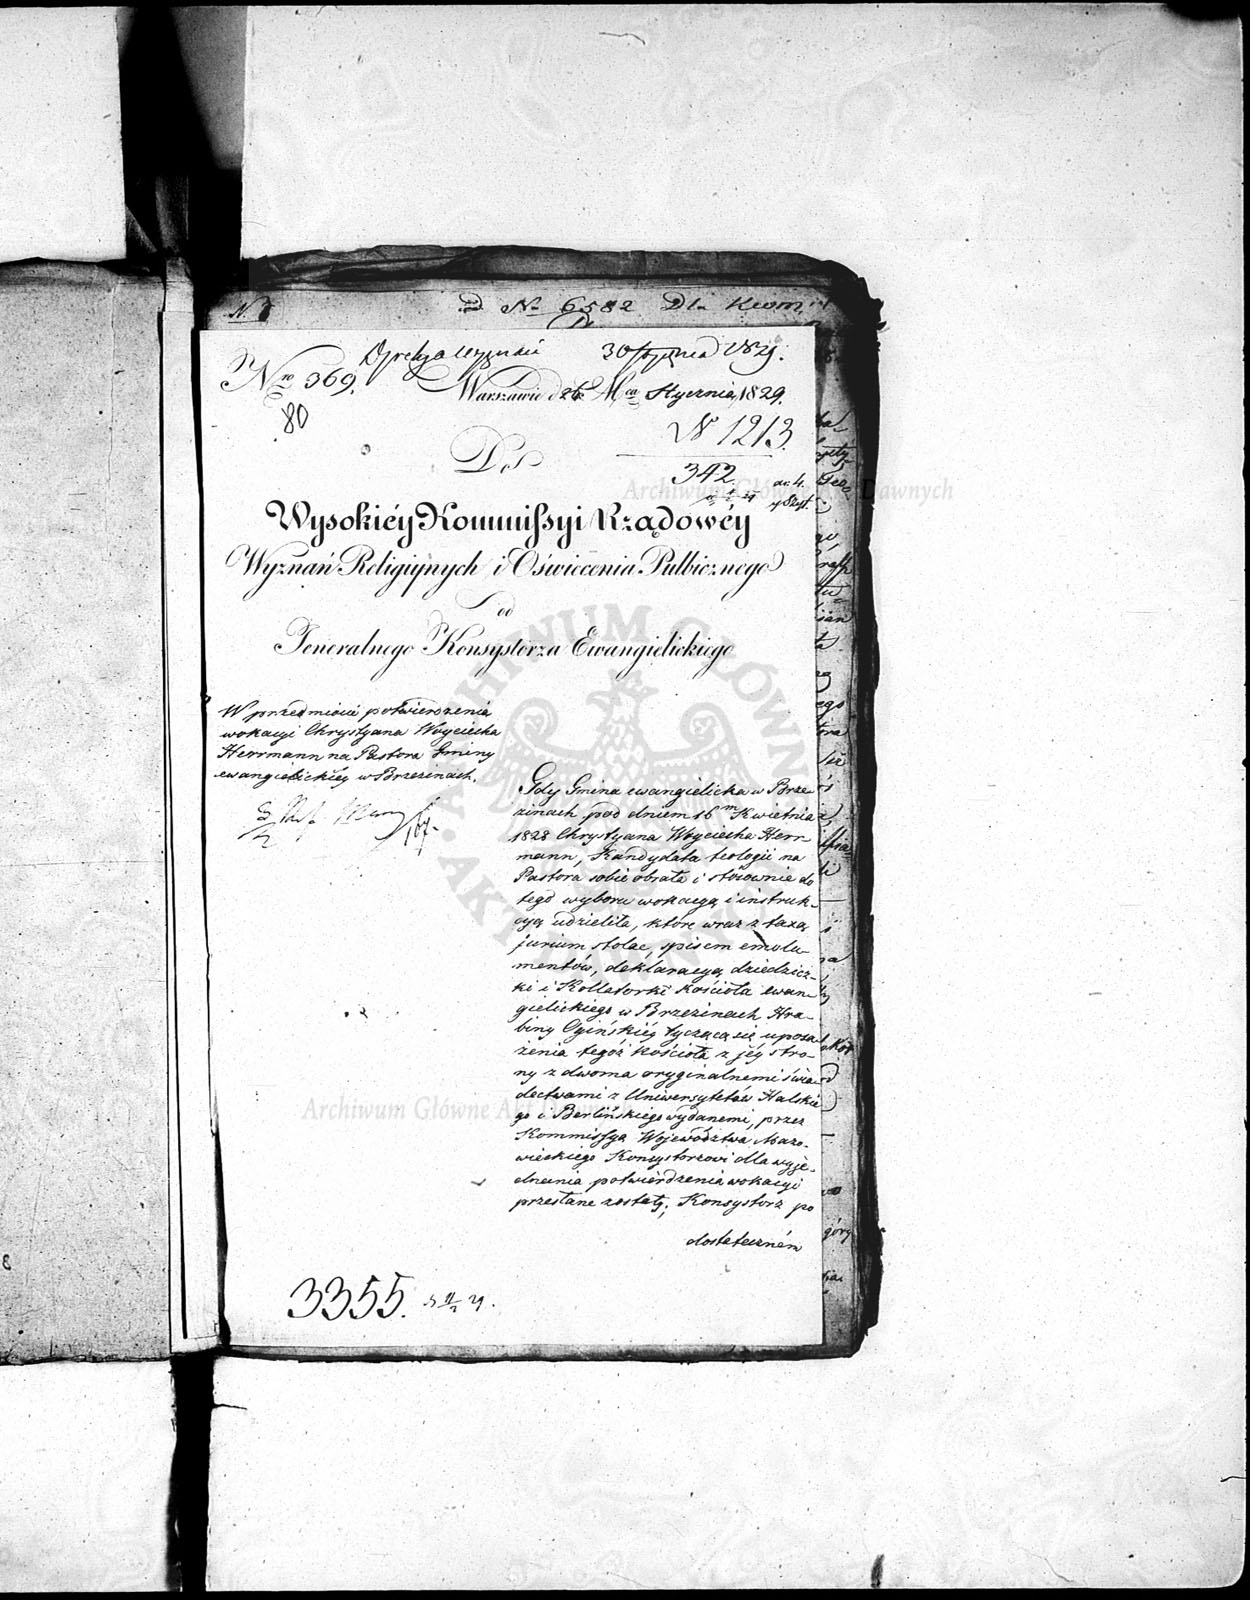 N. 7
N. 6582 Dla Kom
30 stycznia 1829.
Nro 369.
Warszawie d 26 Mca Stycznia 1829.
80
N 1213.
Do
342
Archiwum Główne Akt Dawnych
Wysokiéy Kommissyi Rządowéy
Wyznań Religiynych i Oświecenia Publicznego
od
Jeneralnego Konsystorza Ewangielickiego
ARCHIWUM GŁÓWNE AKT
W przedmiocie potwierdzenia
wokacyi Chrystyana Woyciecha
Herrmann na Pastora Gminy
ewangielickiéy w Brzezinach.
Gdy Gmina ewangielicka w Brze-
zinach pod dniem 16m Kwietnia
1828 Chrystyana Woyciecha Herr-
mann, Kandydata teologii na
Pastora sobie obrała i stósownie do
tego wyboru wokacyą i instruk-
cyą udzieliła, które wraz z taxą
jurium stolae, spisem emolu-
mentów, deklaracyą dziedzicz-
ki i Kollatorki kościoła ewan-
gielickiego w Brzezinach Hra-
biny Ogińskiéy tyczącą się uposa-
żenia tegóż kościoła z jéy stro-
ny z dwoma oryginalnemi świa-
dectwami z Uniwersytetów Halskie
go i Berlińskiego wydanemi, przez
Kommissyą Woiewództwa Mazo-
wieckiego Konsystorzowi dla wyje-
dnania potwierdzenia wokacyi
przesłane zostały; Konsystorz po
dostateczném
Archiwum Główne Akt
3355.